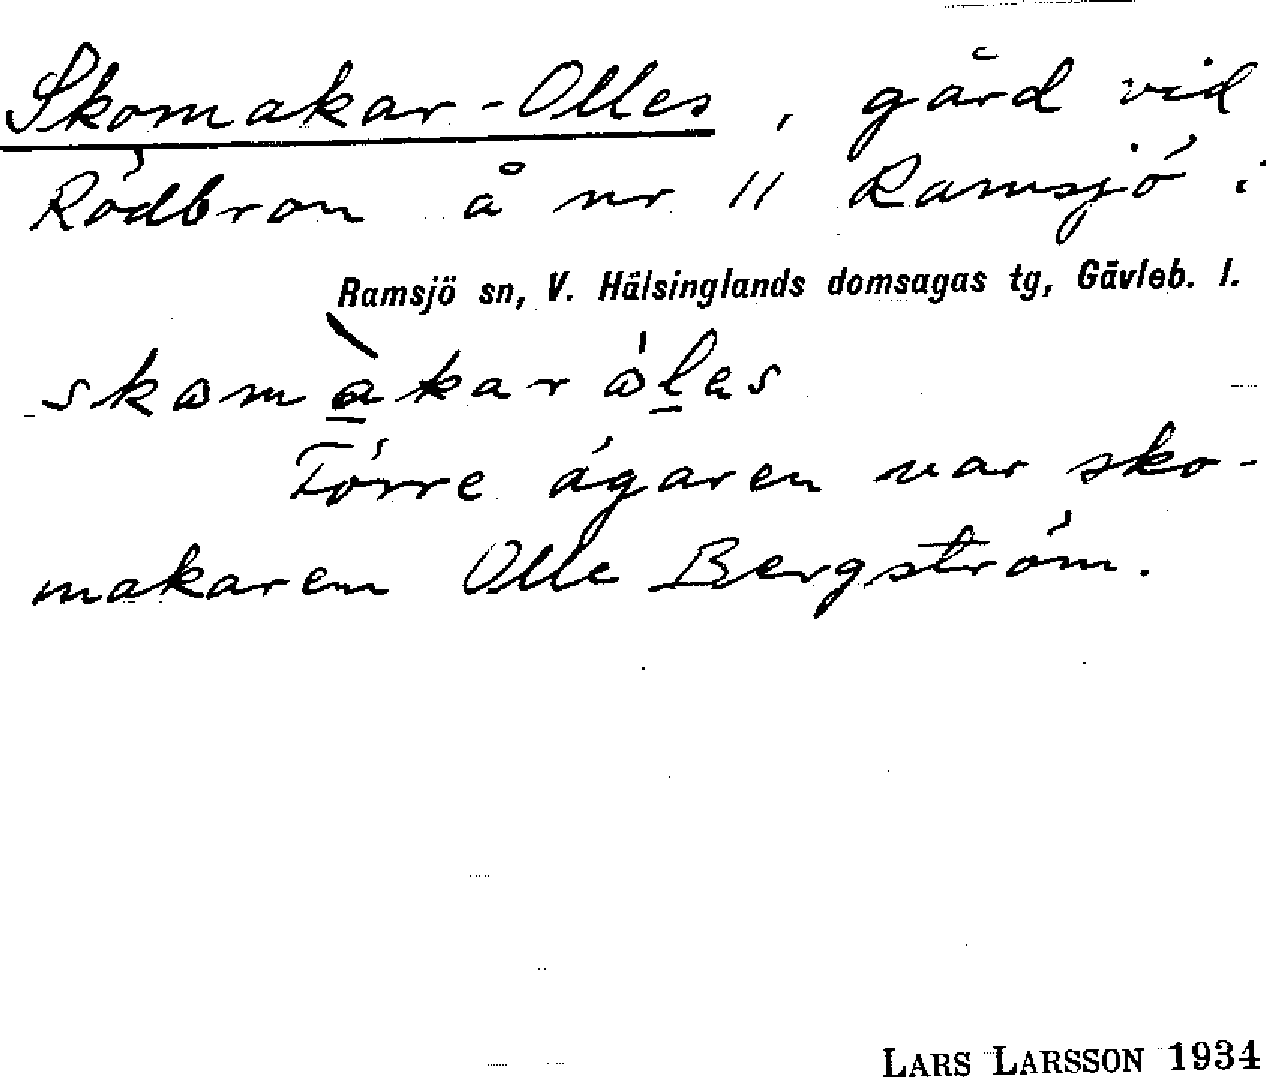 Skomakar-Olles, gård vid
Rödbron å nr 11 Ramsjö i
Ramsjö sn, V. Hälsinglands domsagas tg, Gävleb. l.
skomàkar óles
Förre ägaren var sko-
makaren Olle Bergström.
LARS LARSSON 1934